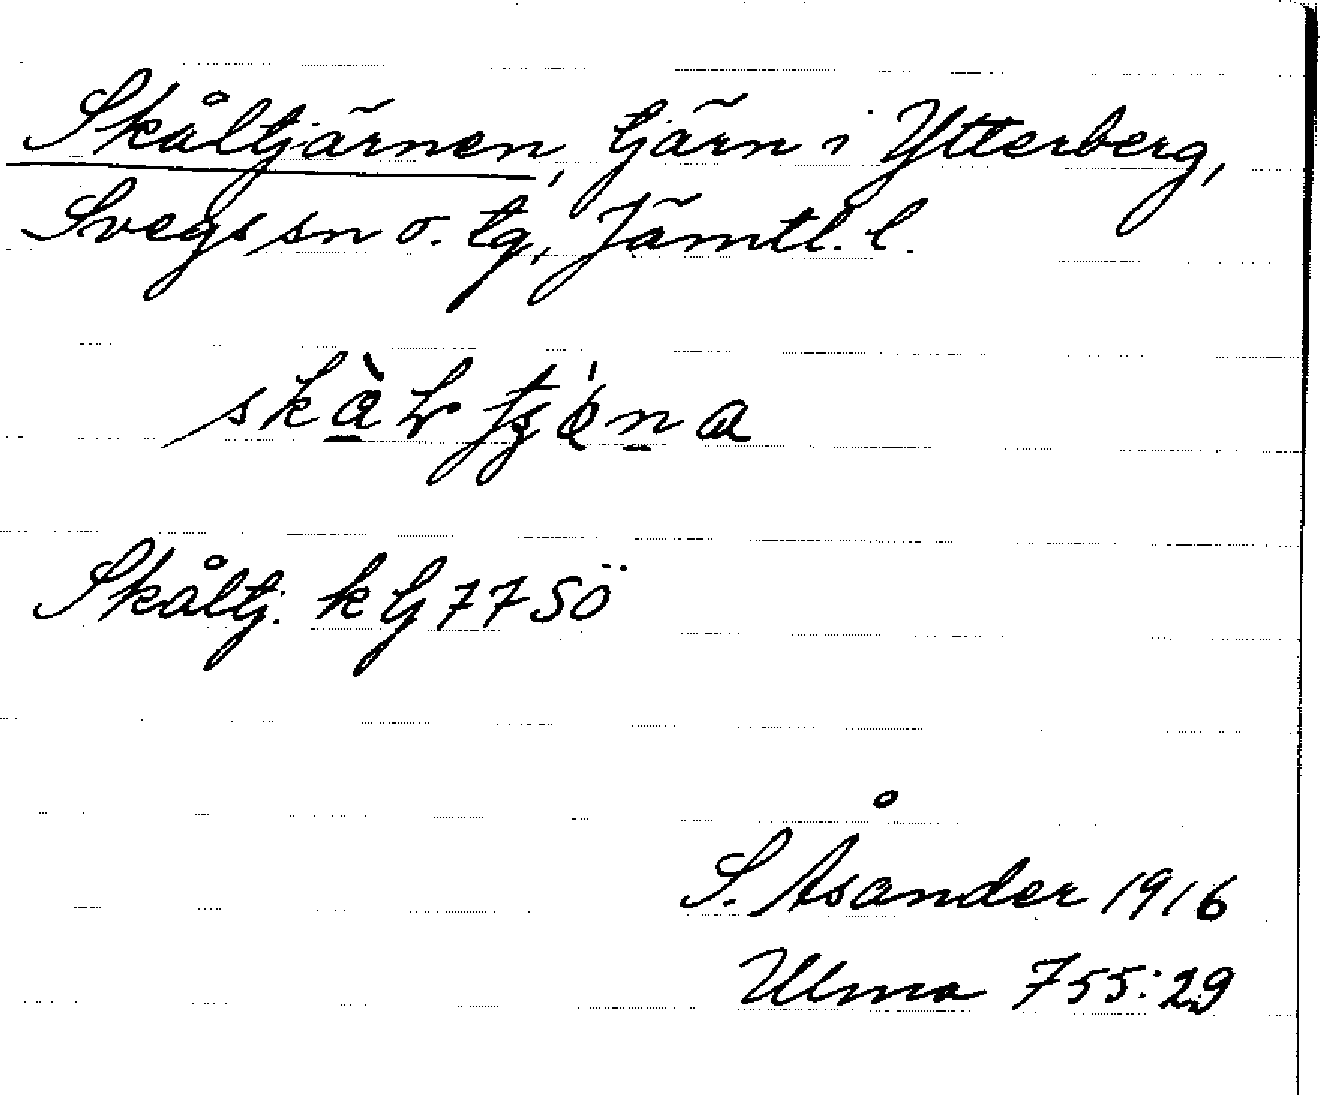 Skåltjärnen, tjärn i Ytterberg,
Svegs sn o. tg, Jämtl. l.
Skåltj. k bj 77 SÖ
S. Åsander 1916
Ulma 755:29